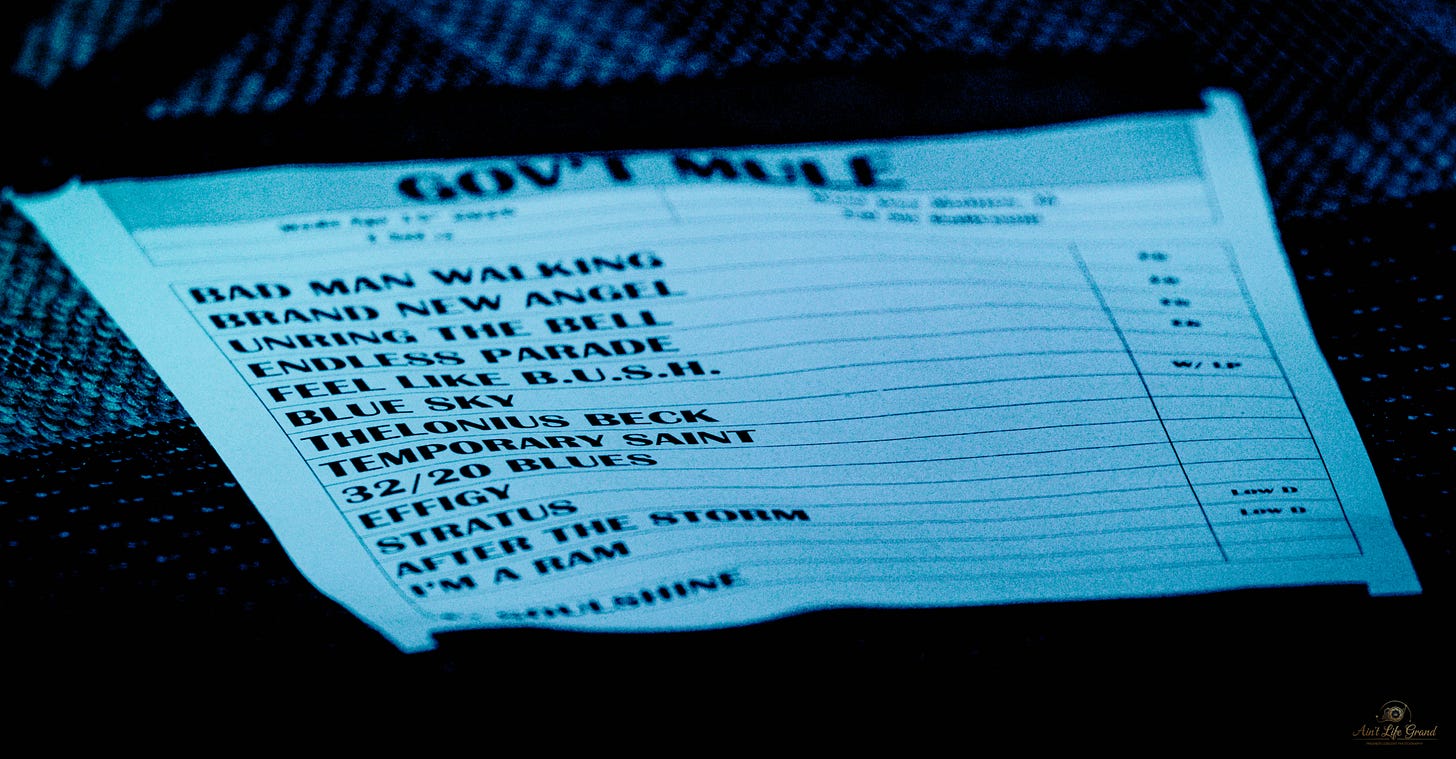 GOV'T MULE
BAD MAN WALKING
BRAND NEW ANGEL
UNRING THE BELL
ENDLESS PARADE
FEEL LIKE B.U.S.H.
BLUE SKY W/ LP
THELONIUS BECK
TEMPORARY SAINT
32/20 BLUES
EFFIGY
STRATUS
AFTER THE STORM LOW D
I'M A RAM LOW D
E: SOULSHINE
Ain't Life Grand